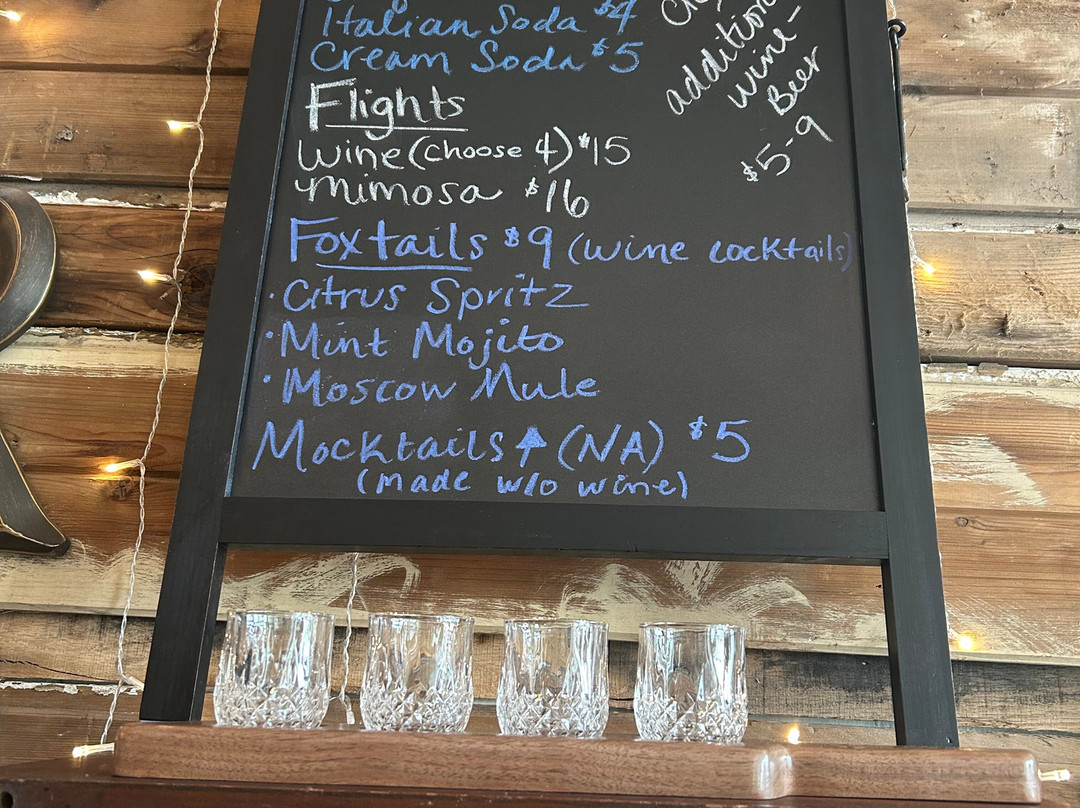 Italian Soda $4
Cream Soda $5
Flights
Wine (choose 4) $15
Mimosa $16
Foxtails $9 (wine cocktails)
· Citrus Spritz
· Mint Mojito
· Moscow Mule
Mocktails ↑ (NA) $5
(made w/o wine)
additional
wine-
Beer
$5-9